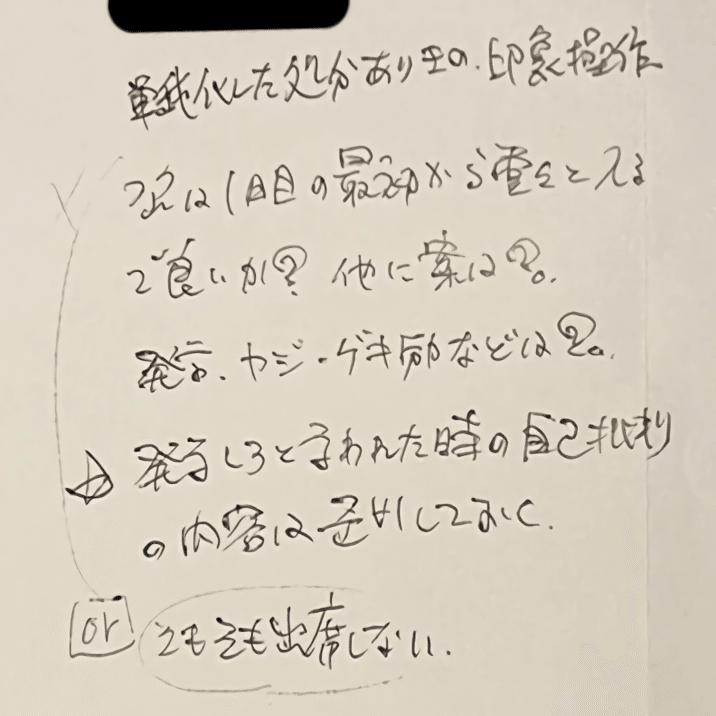 単純化した処分ありきの、印象操作
は1日目の最初から堂々と入る
で良いか?他に案は?。
発言、ヤジ・ゲキ励などは?。
☆発言しろと言われた時の自己批判
の内容は準備しておく.
or そもそも出席しない.